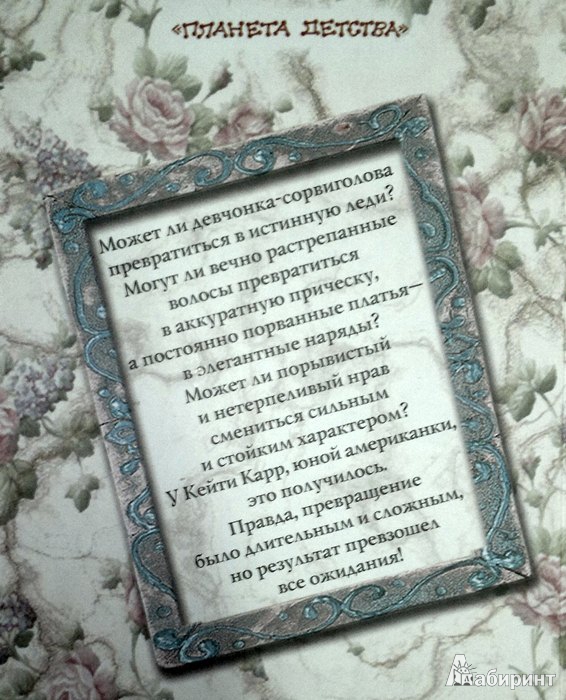 «ПЛАНЕТА ДЕТСТВА»
Может ли девчонка-сорвиголова
превратиться в истинную леди?
Могут ли вечно растрепанные
волосы превратиться
в аккуратную прическу,
а постоянно порванные платья—
в элегантные наряды?
Может ли порывистый
и нетерпеливый нрав
смениться сильным
и стойким характером?
У Кейти Карр, юной американки,
это получилось.
Правда, превращение
было длительным и сложным,
но результат превзошел
все ожидания!
Лабиринт